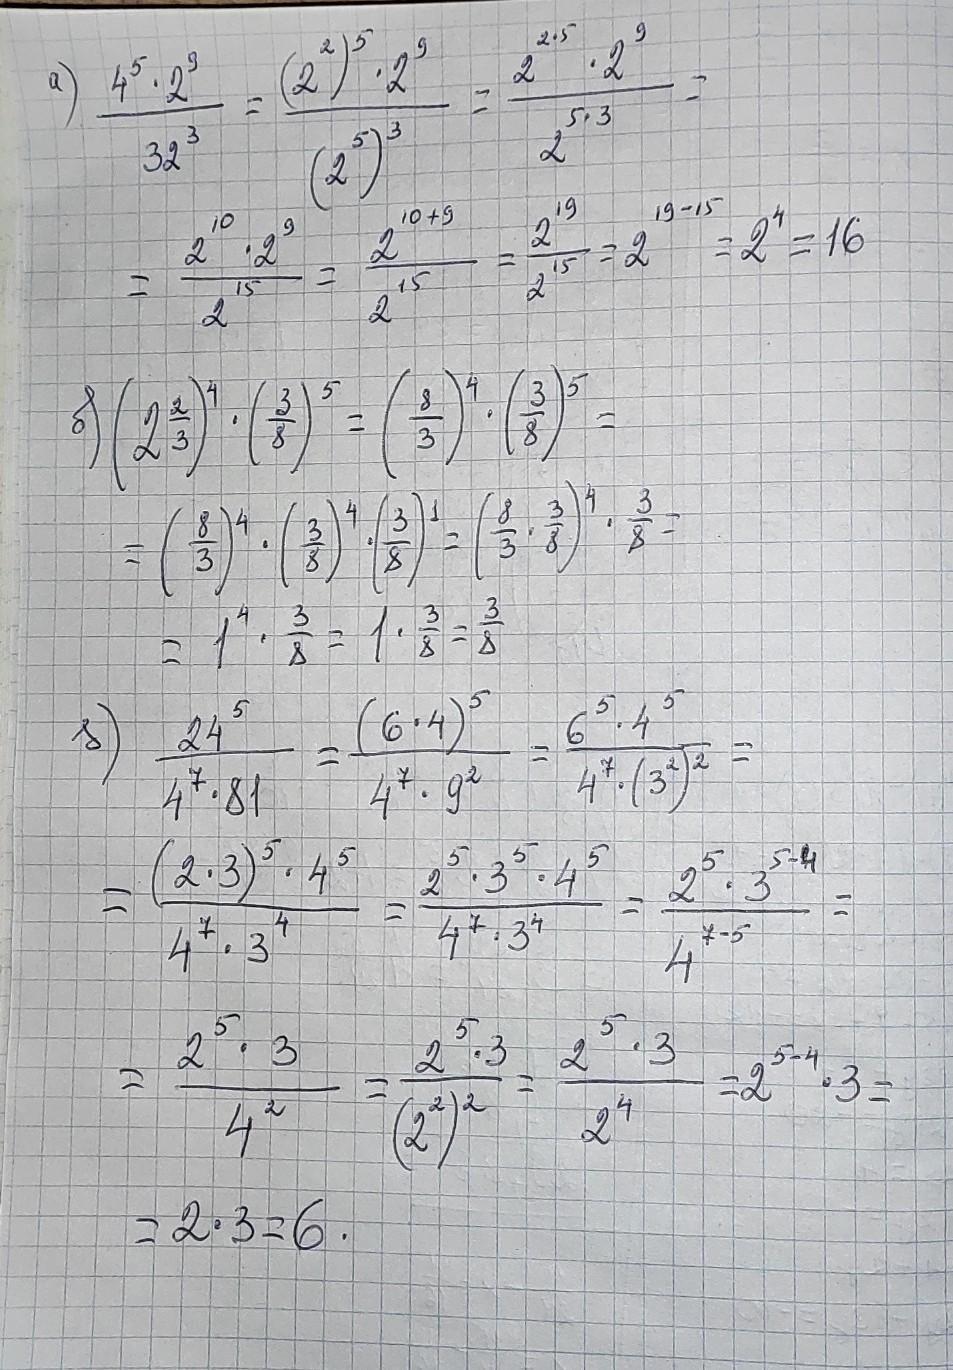 а) (4^5 · 2^9)/(32^3) = ((2^2)^5 · 2^9)/((2^5)^3) = (2^(2·5) · 2^9)/(2^(5·3)) =
= (2^10 · 2^9)/(2^15) = (2^(10+9))/(2^15) = (2^19)/(2^15) = 2^(19-15) = 2^4 = 16
б) (2 2/3)^4 · (3/8)^5 = (8/3)^4 · (3/8)^5 =
= (8/3)^4 · (3/8)^4 · (3/8)^1 = (8/3 · 3/8)^4 · 3/8 =
= 1^4 · 3/8 = 1 · 3/8 = 3/8
в) (24^5)/(4^7 · 81) = ((6·4)^5)/(4^7 · 9^2) = (6^5 · 4^5)/(4^7 · (3^2)^2) =
= ((2·3)^5 · 4^5)/(4^7 · 3^4) = (2^5 · 3^5 · 4^5)/(4^7 · 3^4) = (2^5 · 3^(5-4))/(4^(7-5)) =
= (2^5 · 3)/(4^2) = (2^5 · 3)/((2^2)^2) = (2^5 · 3)/(2^4) = 2^(5-4) · 3 =
= 2 · 3 = 6.